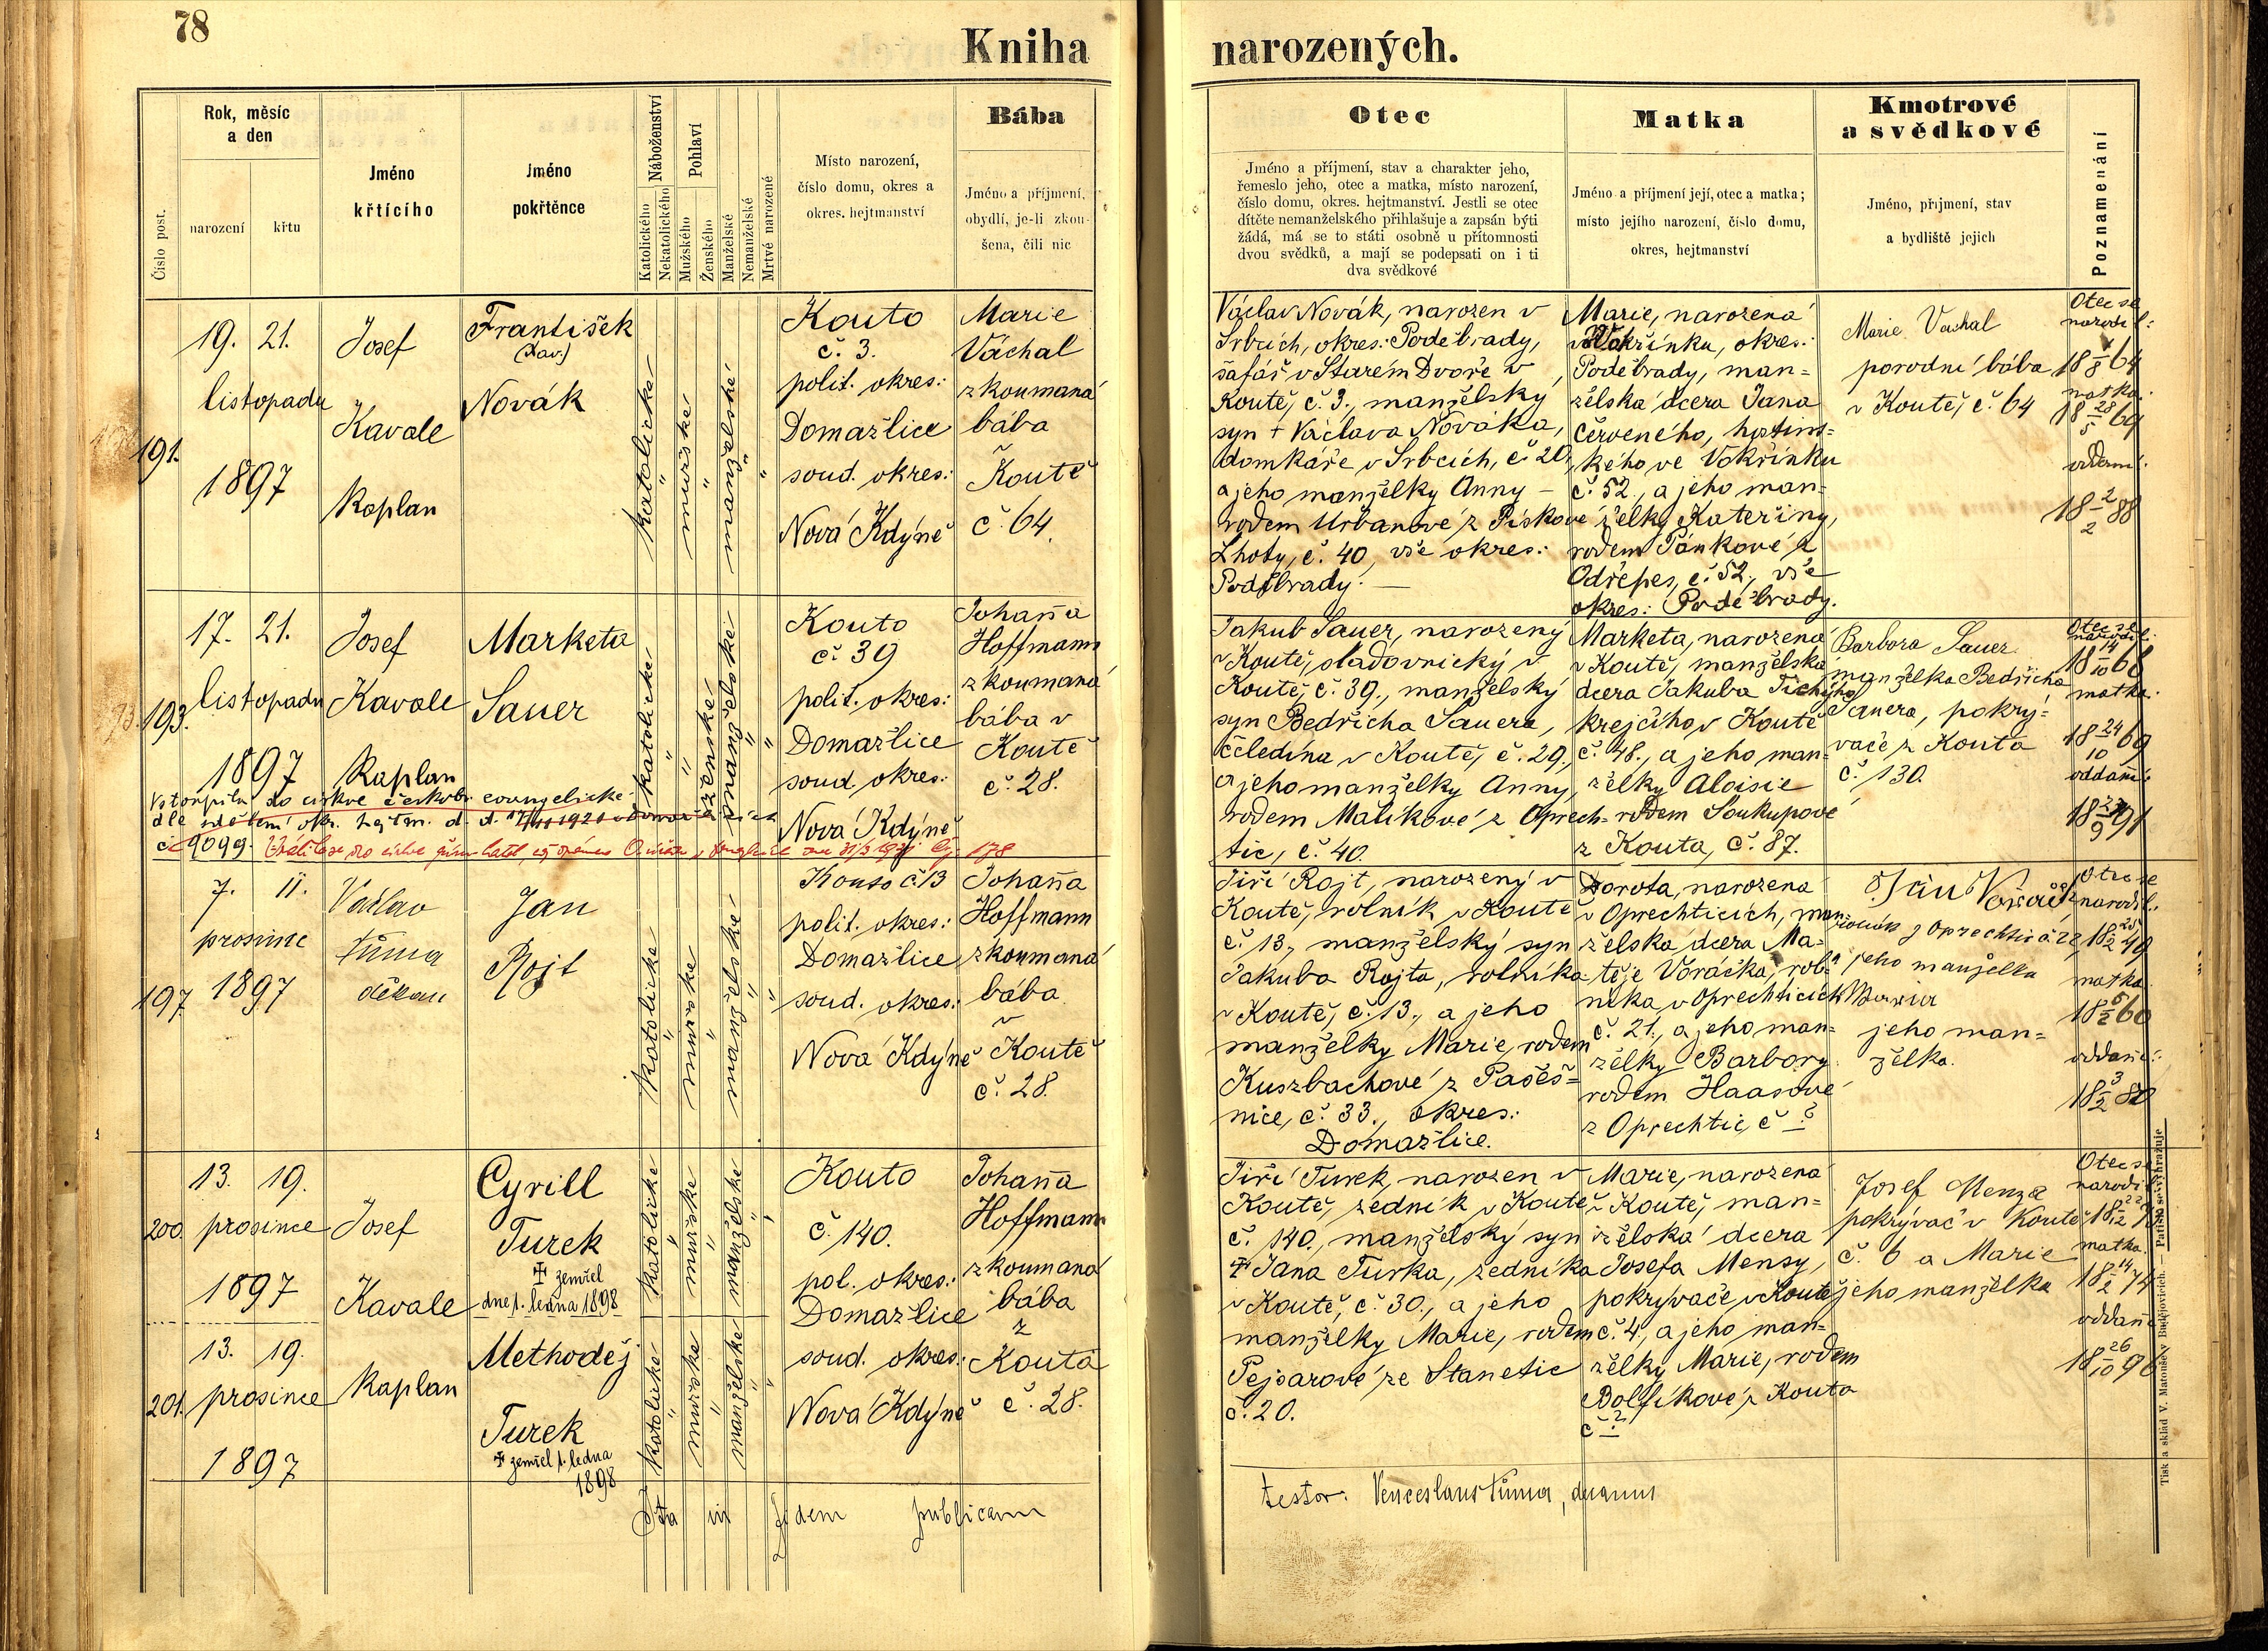 78
Kniha
narozených.
Číslo post.
Rok, měsíc
a den
narození
křtu
Jméno
křtícího
Jméno
pokřtěnce
Náboženství
Katolického
Nekatolického
Pohlaví
Mužského
Ženského
Manželské
Nemanželské
Mrtvě narozené
Místo narození,
číslo domu, okres a
okres. hejtmanství
Bába
Jméno a příjmení,
obydlí, je-li zkou-
šena, čili nic
Otec
Jméno a příjmení, stav a charakter jeho,
řemeslo jeho, otec a matka, místo narození,
číslo domu, okres. hejtmanství. Jestli se otec
dítěte nemanželského přihlašuje a zapsán býti
žádá, má se to státi osobně u přítomnosti
dvou svědků, a mají se podepsati on i ti
dva svědkové
Matka
Jméno a příjmení její, otec a matka;
místo jejího narození, číslo domu,
okres, hejtmanství
Kmotrové
a svědkové
Jméno, příjmení, stav
a bydliště jejich
Poznamenání
191.
19. 21.
listopadu
1897
Josef
Kavale
Kaplan
František
Novák
katolické
"
mužské
"
manželské
"
"
Kouto
č. 3.
polit. okres.:
Domažlice
soud. okres.:
Nová Kdýně
Marie
Váchal
zkoumaná
bába
Koutě
č. 64.
Václav Novák, narozen v
Srbcích, okres.: Poděbrady,
šafář v Starém Dvoře v
Koutě, č. 3., manželský
syn + Václava Nováka,
domkáře v Srbcích, č. 20,
a jeho manželky Anny –
rodem Urbanové z Pískové
Lhoty, č. 40, vše okres.:
Poděbrady. —
Marie, narozená
Vokřínku, okres.:
Poděbrady, man=
želská dcera Jana
Červeného,
kého ve Vokřínku
č. 52., a jeho man=
želky Kateřiny,
rodem Pánkové z
Odřepes, č. 52., vše
okres.: Poděbrady.
Marie Vachal
porodní bába
v Koutě, č. 64
Otec se
narodil:
18 1/8 64
matka:
18 28/5 69
oddaní:
18 2/2 88
193.
17. 21.
listopadu
1897
Josef
Kavale
Kaplan
Marketa
Sauer
katolické
"
"
ženské
manželské
"
"
Kouto
č. 39
polit. okres.:
Domažlice
soud. okres.:
Nová Kdýně
Johana
Hoffmann
zkoumaná
bába v
Koutě
č. 28.
Vstoupila do církve českobr. evangelické
dle sdělení okr. hejtm. d. d.
č 9099.
178
Jakub Sauer, narozený
v Koutě, sladovnický v
Koutě, č. 39., manželský
syn Bedřicha Sauera,
čeledína v Koutě, č. 29.,
a jeho manželky Anny,
rodem Malíkové z Oprech-
tic, č. 40.
Marketa, narozená
v Koutě, manželská
dcera Jakuba Tichýho
krejčího v Koutě
č. 48., a jeho man-
želky Aloisie
rodem Soukupové
z Kouta, č. 87.
Barbora Sauer
manželka Bedřicha
Sauera, pokrý=
vače z Kouta
č. 130.
Otec se
narodil:
18 14/10 68
matka:
18 24/10 69
oddaní:
197
7. 11.
prosince
1897
Václav
Tůma
děkan
Jan
Rojt
katolické
"
mužské
"
manželské
"
"
Kouto č. 13
polit. okres.:
Domažlice
soud. okres.:
Nová Kdýně
Johana
Hoffmann
zkoumaná
bába
v
Koutě
č. 28.
Jiří Rojt, narozený v
Koutě, rolník v Koutě
č. 13., manželský syn
Jakuba Rojta, rolníka
v Koutě, č. 13., a jeho
manželky Marie, rodem
Kuszbachové z Paseš=
nice, č. 33., okres.:
Domažlice.
Dorota, narozená
v Oprechticích, man=
želská dcera Ma=
těje Voráčka, rol=
níka v Oprechticích
č. 21., a jeho man=
želky Barbory
rodem Haasové
z Oprechtic, č ?
Jan Voráček
rolník z Oprechtic č. 22
jeho manželka
Maria
jeho man=
želka.
Otec se
narodil:
matka:
oddaní:
200.
13. 19.
prosince
1897
Josef
Kavale
Kaplan
Cyrill
Turek
‡ zemřel
dne 1. ledna 1898
katolické
"
mužské
"
manželské
"
Kouto
č. 140.
pol. okres.:
Domažlice
soud. okres.:
Nová Kdýně
Johana
Hoffmann
zkoumaná
bába
z
Kouta
č. 28.
201.
13. 19.
prosince
1897
Methoděj
Turek
‡ zemřel 1. ledna
1898
katolické
"
mužské
"
manželské
"
Jiří Turek, narozen v
Koutě, zedník v Koutě
č. 140., manželský syn
‡ Jana Turka, zedníka
v Koutě, č. 30., a jeho
manželky Marie, rodem
Pejsarové ze Stanetic
č. 20.
Marie, narozená
v Koutě, man=
želská dcera
Josefa Mensy,
pokrývače v Koutě
č. 4., a jeho man=
želky Marie, rodem
Bolfíkové z Kouta
č ?
Josef Menza
pokrývač v Koutě
č. 6 a Marie
jeho manželka
Otec se
narodil:
matka:
18 14/2 74
oddaní
Ita in fidem publicam
testor. Venceslaus Tůma, decanus
Tisk a sklad V. Matouše v Budějovicích. — Patisk se vyhražuje